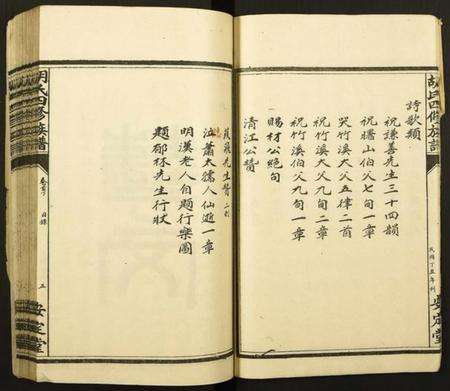 胡氏四修族譜
民國丁丑年刊
安定堂
詩歌類
祝謙善先生三十四韻
祝曙山伯父七旬一章
哭竹溪大父五律二首
祝竹溪大父九旬二章
祝竹溪伯父九旬一章
賜材公絕句
清江公贊
先生贊二則
泣蕭太孺人仙逝一章
明漢老人自題行樂圖
題郁林先生行狀
胡氏四修族譜
卷首下 目錄 五
安定堂